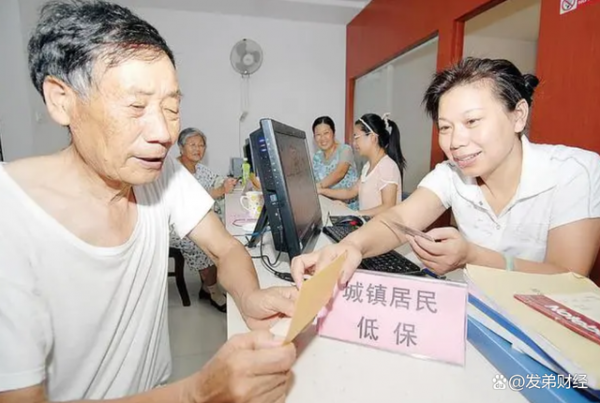 城镇居民
低保
Notebook
@发弟财经